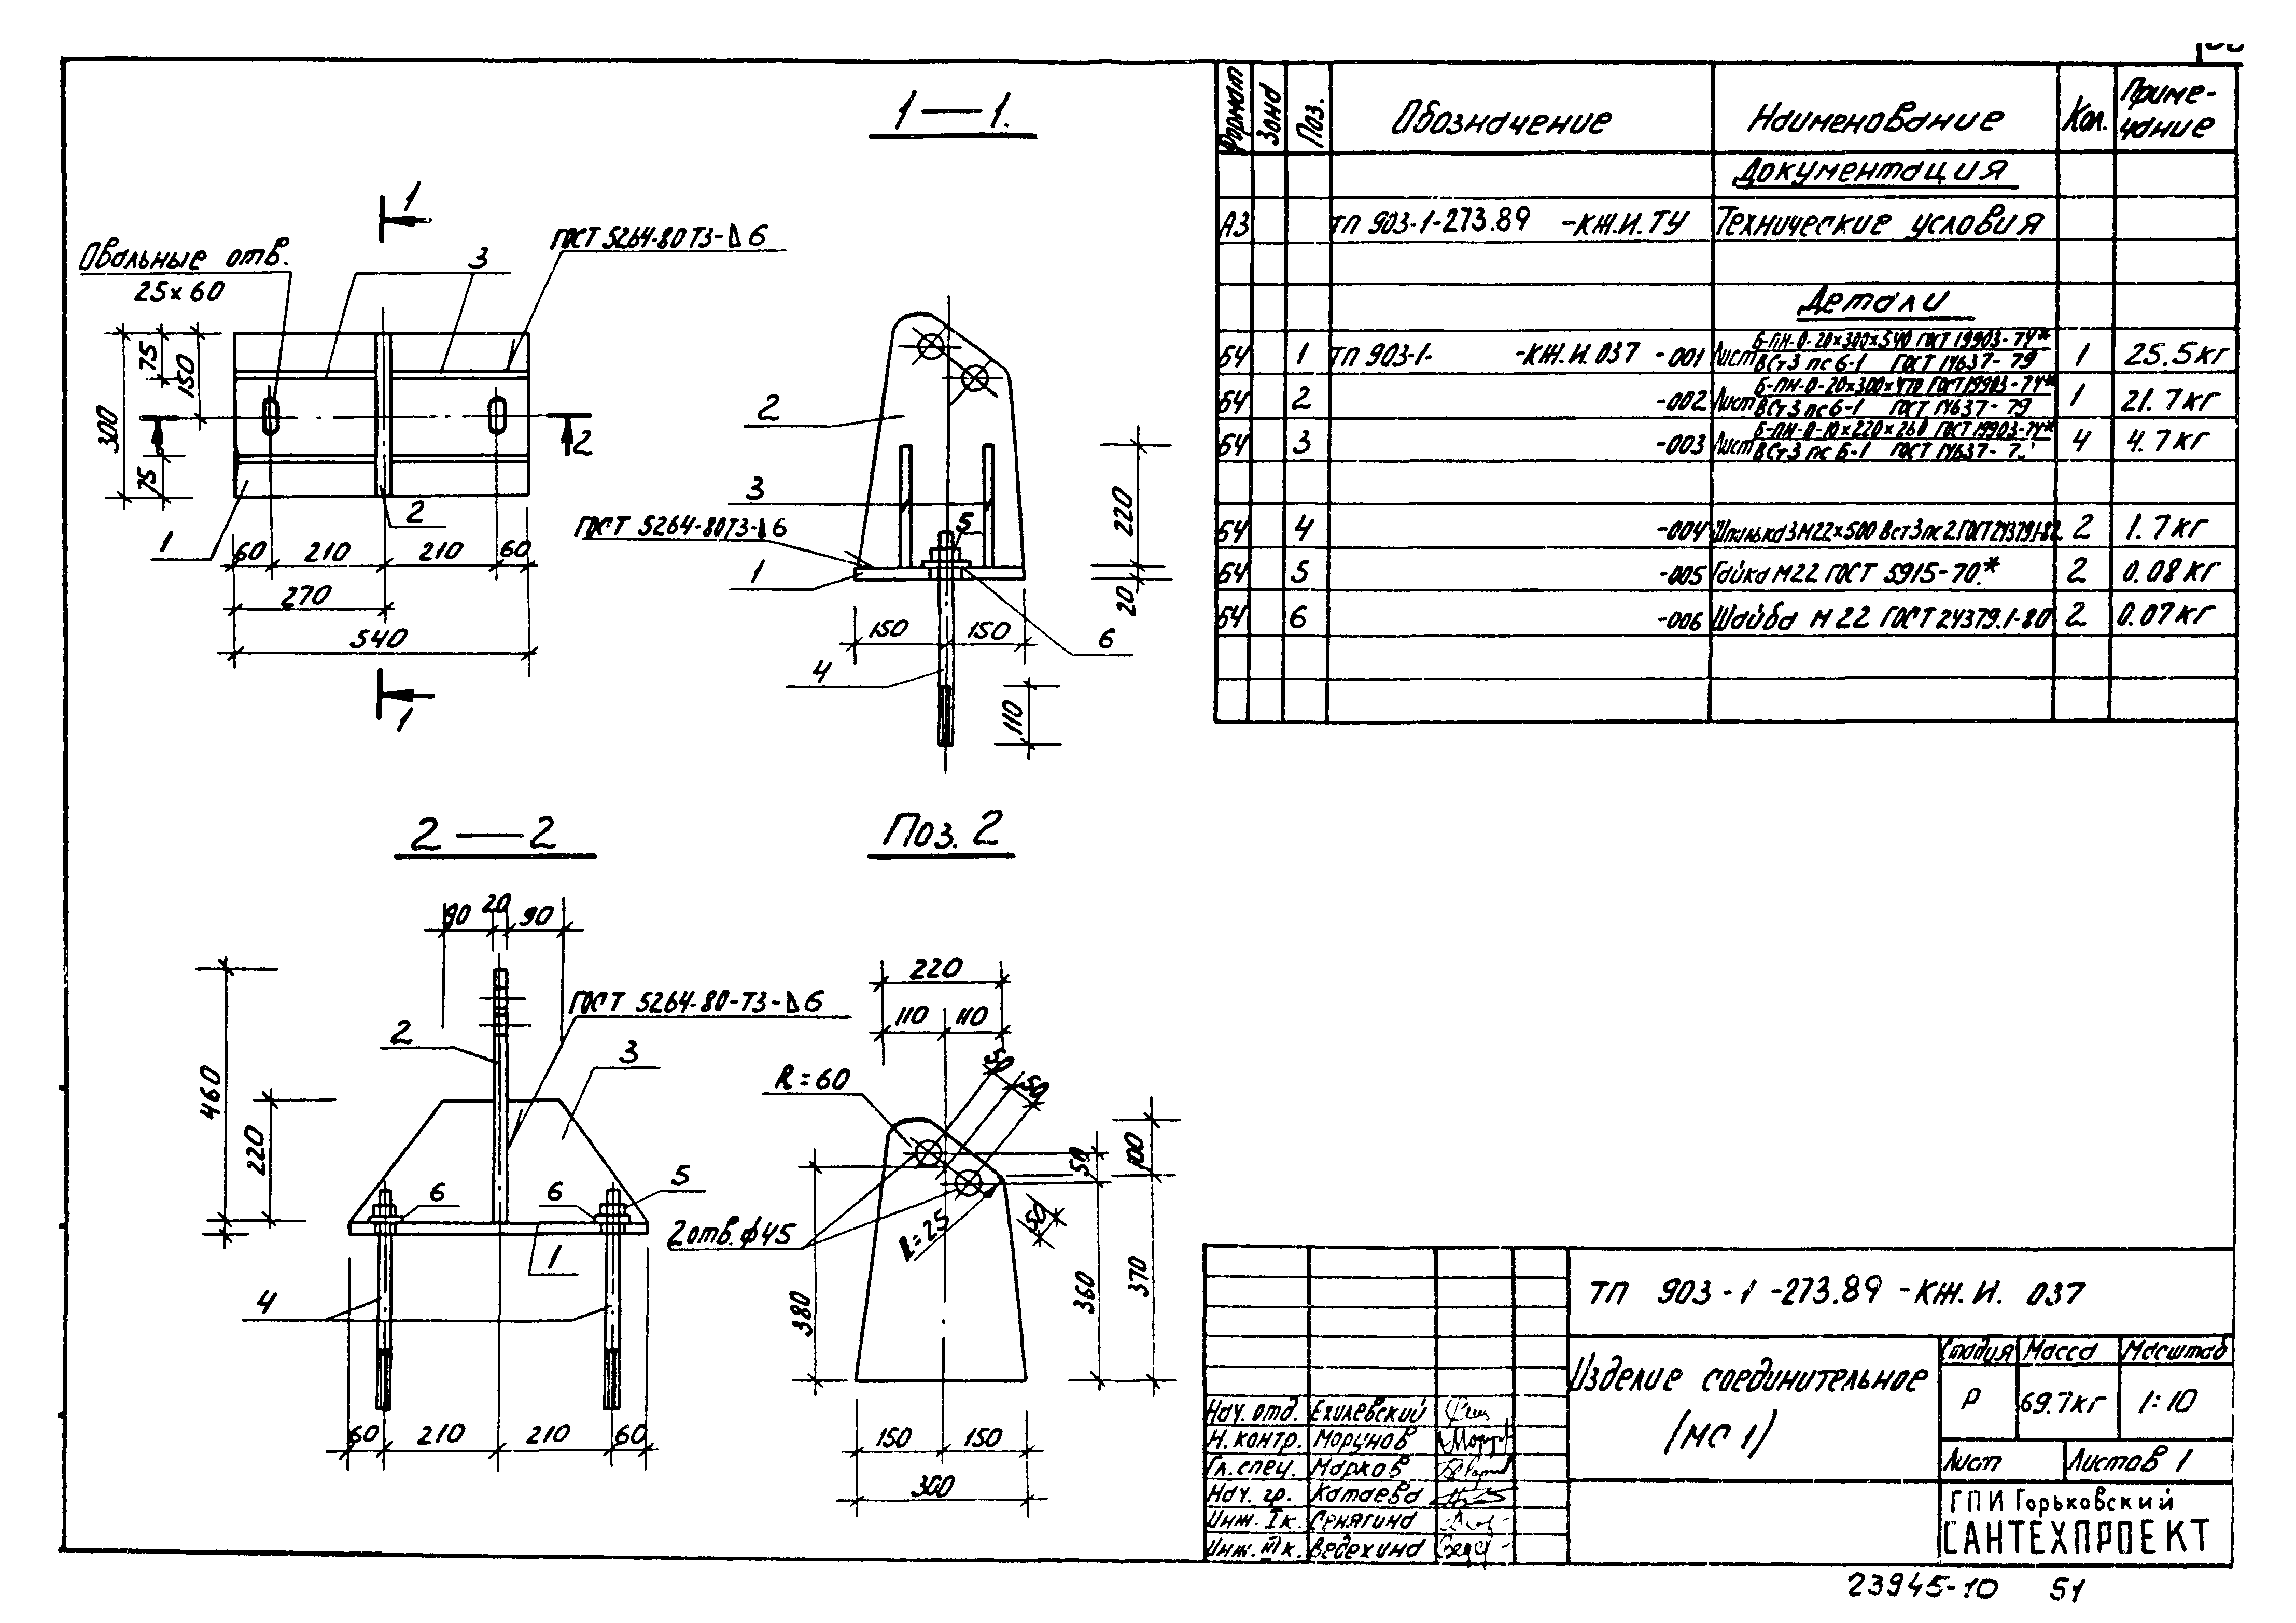 1—1.
1
ГОСТ 5264-80 Т3-△6
Овальные отв.
25×60
3
75
150
300
75
2
1
2
60 210 210 60
270
540
1
2
3
ГОСТ 5264-80 Т3-△6
5
1
220
20
150 150
6
4
110
2—2
90 20 90
ГОСТ 5264-80-Т3-△6
2
3
460
220
6 6 5
1
4
60 210 210 60
Поз. 2
220
110 110
50
50
R=60
50
100
2 отв. ф45
R=25
50
380
360
370
150 150
300
Формат Зона Поз. Обозначение Наименование Кол. Приме-
чание
Документация
А3 ТП 903-1-273.89 -КЖ.И.ТУ Технические условия
Детали
БЧ 1 ТП 903-1- -КЖ.И.037 -001 Лист Б-ПН-0-20×300×540 ГОСТ 19903-74* 1 25.5кг
ВСт3 пс 6-1 ГОСТ 14637-79
БЧ 2 -002 Лист Б-ПН-0-20×300×470 ГОСТ 19903-74* 1 21.7кг
ВСт3 пс 6-1 ГОСТ 14637-79
БЧ 3 -003 Лист Б-ПН-0-10×220×260 ГОСТ 19903-74* 4 4.7кг
ВСт3 пс 6-1 ГОСТ 14637-
БЧ 4 -004 Шпилька 3 М22×500 Вст3пс2 2 1.7кг
БЧ 5 -005 Гайка М22 ГОСТ 5915-70.* 2 0.08кг
БЧ 6 -006 Шайба М 22 ГОСТ 24379.1-80 2 0.07кг
ТП 903-1-273.89-КЖ.И. 037
Изделие соединительное
(МС 1)
Стадия Масса Масштаб
Р 69.7кг 1:10
Лист Листов 1
ГПИ Горьковский
САНТЕХПРОЕКТ
Нач. отд. Ехилевский
Н. контр. Моргунов
Гл. спец. Марков
Нач. гр. Катаева
Инж. I к. Сенягина
Инж. II к. Ведехина
23945-10 51